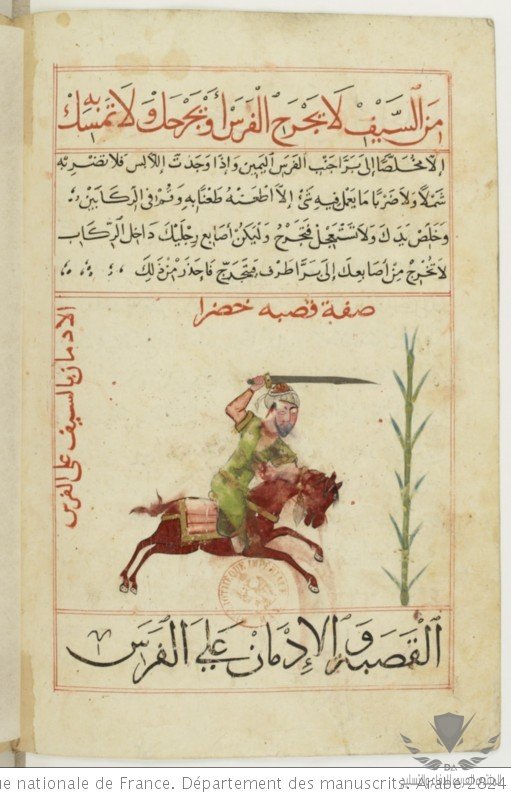 من السيف لا يجرح الفرس أو يجرحك ولا تمسك به
إلا مخلصًا إلى برا جنب الفرس اليمين واذا وجدت اللابس فلا تضربه
شملاً ولا ضربًا ما يعمل فيه شئ إلا اطعنه طعنًا به وقم في الركابين
وخلص يدك ولا تستعجل فتجرح وليكن أصابع رجليك داخل الركاب
لا تخرج من أصابعك إلى برا طرف فتجرح فاحذر من ذلك
صفة قصبه خضرا
الادمان بالسيف على الفرس
القصبة والإدمان على الفرس
BIBLIOTHEQUE IMPERIALE
ue nationale de France. Département des manuscrits. Arabe 2824